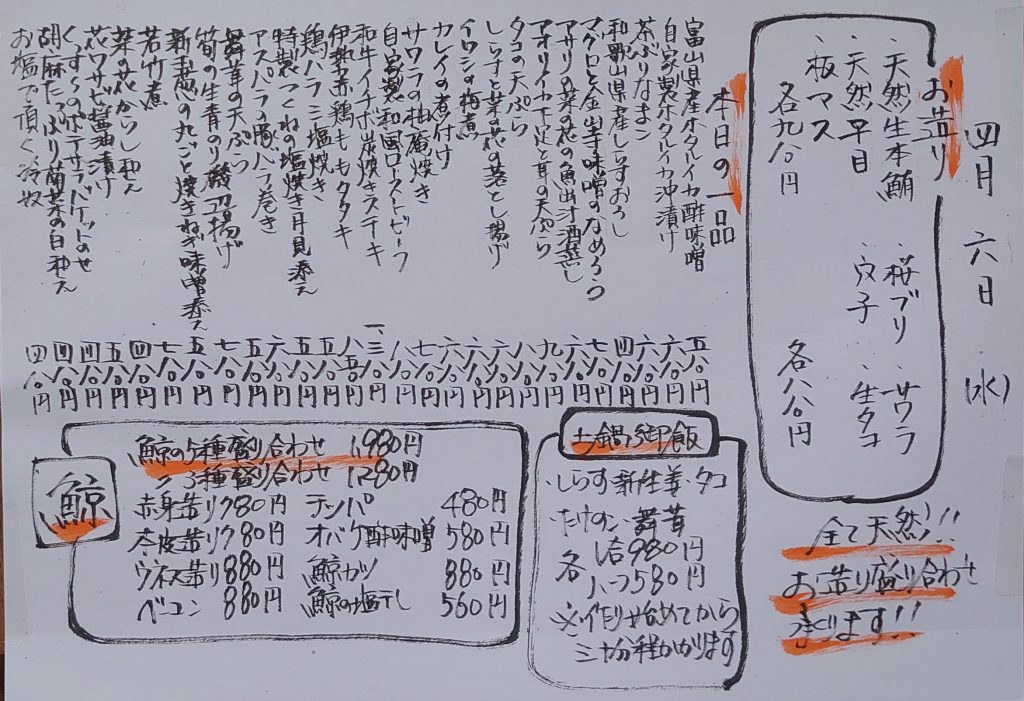 四月六日(水)
お造り
・天然生本鮪 ・桜ブリ ・サワラ
・天然平目 ・穴子 ・生タコ
・板マス
各九八〇円 各八八〇円
全て天然!!
お造り盛り合わせ
つくります!!
本日の一品
富山県産ホタルイカ酢味噌
自家製ホタルイカ沖漬け
茶ぶりなまこ
和歌山県産しらすおろし
マグロと金山寺味噌のなめろう
アサリの菜の花の魚出汁酒蒸し
アオリイカ下足と茸の天ぷら
タコの天ぷら
しらすと菜の花の落とし揚げ
イワシの梅煮
カレイの煮付け
サワラの柚庵焼き
自家製和風ローストビーフ
和牛イチボ炭焼きステーキ
伊勢赤鶏ももタタキ
鶏ハラミ塩焼き
特製つくねの塩焼き月見添え
アスパラの豚バラ巻き
舞茸の天ぷら
筍の生青のり磯辺揚げ
新玉葱の丸ごと焼きねぎ味噌添え
若竹煮
菜の花からし和え
花ワサビ醤油漬け
ポテサラバゲットのせ
胡麻たっぷり菊菜の白和え
お塩で頂く冷奴
五八〇円
六八〇円
六八〇円
四八〇円
七八〇円
六八〇円
九八〇円
八八〇円
八八〇円
六八〇円
六八〇円
六八〇円
七八〇円
八八〇円
一、三八〇円
八五〇円
五八〇円
五八〇円
六八〇円
五八〇円
七八〇円
五八〇円
七八〇円
四八〇円
五八〇円
四八〇円
四八〇円
四八〇円
土鍋御飯
・しらす・新生姜・タコ
・たけのこ・舞茸
各 1合980円
ハーフ580円
※作り始めてから
三十分程かかります
鯨
鯨の5種盛り合わせ 1,980円
〃 3種盛り合わせ 1280円
赤身造り980円 テッパ 480円
本皮造り780円 オバケ酢味噌 580円
ウネス造り880円 鯨カツ 880円
ベーコン 880円 鯨の塩干し 560円